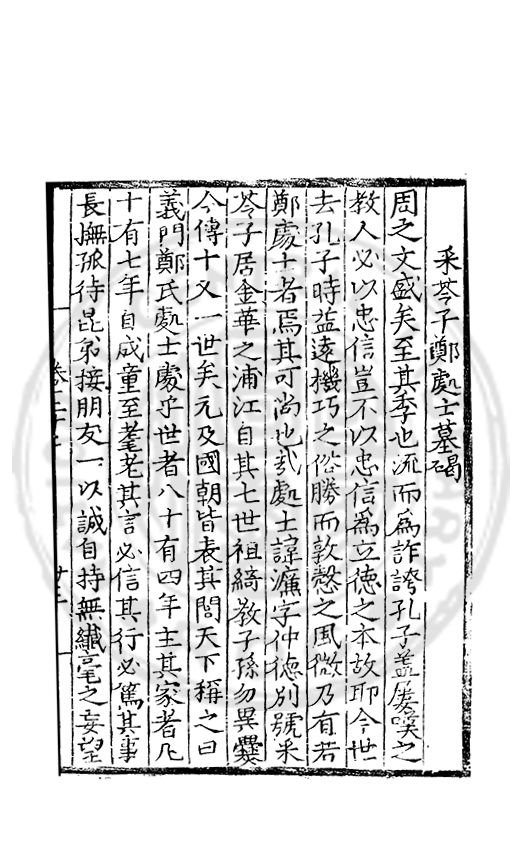 采苓子鄭處士墓碣
周之文盛矣至其季也流而為詐誇孔子蓋屢嘆之
教人必以忠信豈不以忠信為立德之本故耶今世
去孔子時益遠機巧之俗勝而敦慤之風微乃有若
鄭處士者焉其可尚也哉處士諱濂字仲德別號采
苓子居金華之浦江自其七世祖綺教子孫勿異爨
今傳十又一世矣元及國朝皆表其閭天下稱之曰
義門鄭氏處士處乎世者八十有四年主其家者凡
十有七年自成童至耄老其言必信其行必篤其事
長撫孤待昆弟接朋友一以誠自持無纖毫之妄望